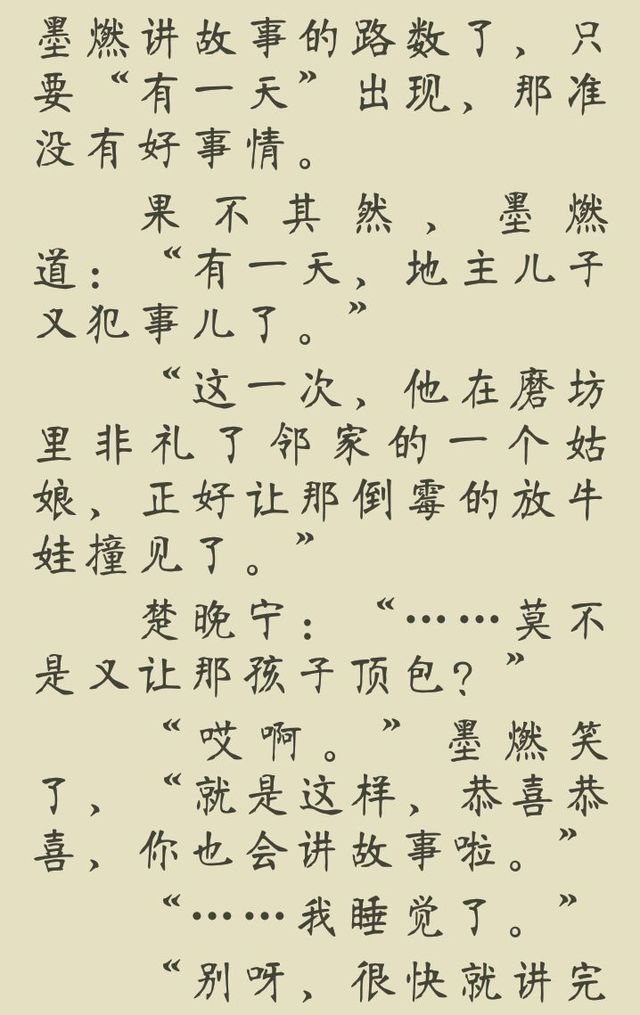 墨燃讲故事的路数了，只
要“有一天”出现，那准
没有好事情。
果不其然，墨燃
道：“有一天，地主儿子
又犯事儿了。”
“这一次，他在磨坊
里非礼了邻家的一个姑
娘，正好让那倒霉的放牛
娃撞见了。”
楚晚宁：“……莫不
是又让那孩子顶包？”
“哎啊。”墨燃笑
了，“就是这样，恭喜恭
喜，你也会讲故事啦。”
“……我睡觉了。”
“别呀，很快就讲完